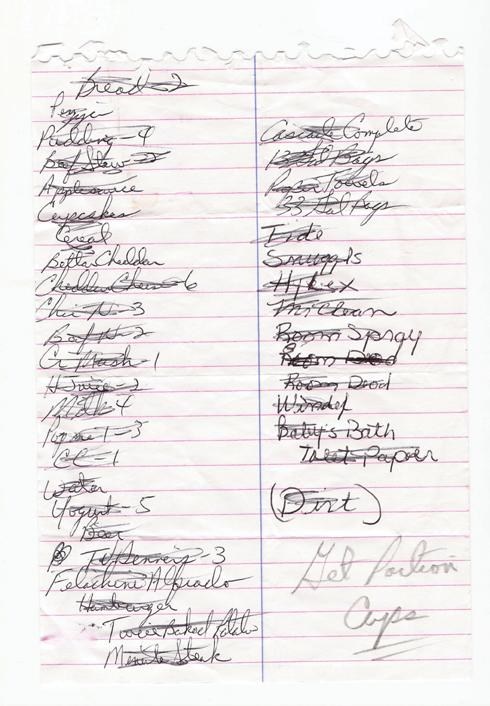 Bread-2
Peggi
Pudding-4
Beef Stew-2
Applesauce
Cupcakes
Cereal
Better Cheddar
Cheddar Chew-6
Chic N-3
Beef N-2
Cr Mush-1
H Juice-2
Milk 4
CC-1
Water
Yogurt-5
Beer
TV Dinners-3
Felachene Alfredo
Hamburger
Twice Baked Potato
Minute Steak
Cascade Complete
Bags
Paper Towels
33 Gal Bags
Tide
Snuggls
Hylex
Room Spray
Room Deod
Room Deod
Windex
Baby's Bath
Toilet Paper
(Dirt)
Get Portion
Cups